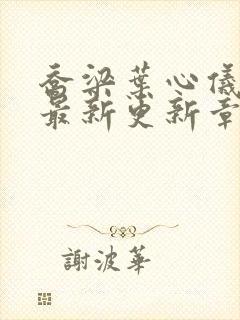 喬梁葉心儀
最新更新章
謝波華